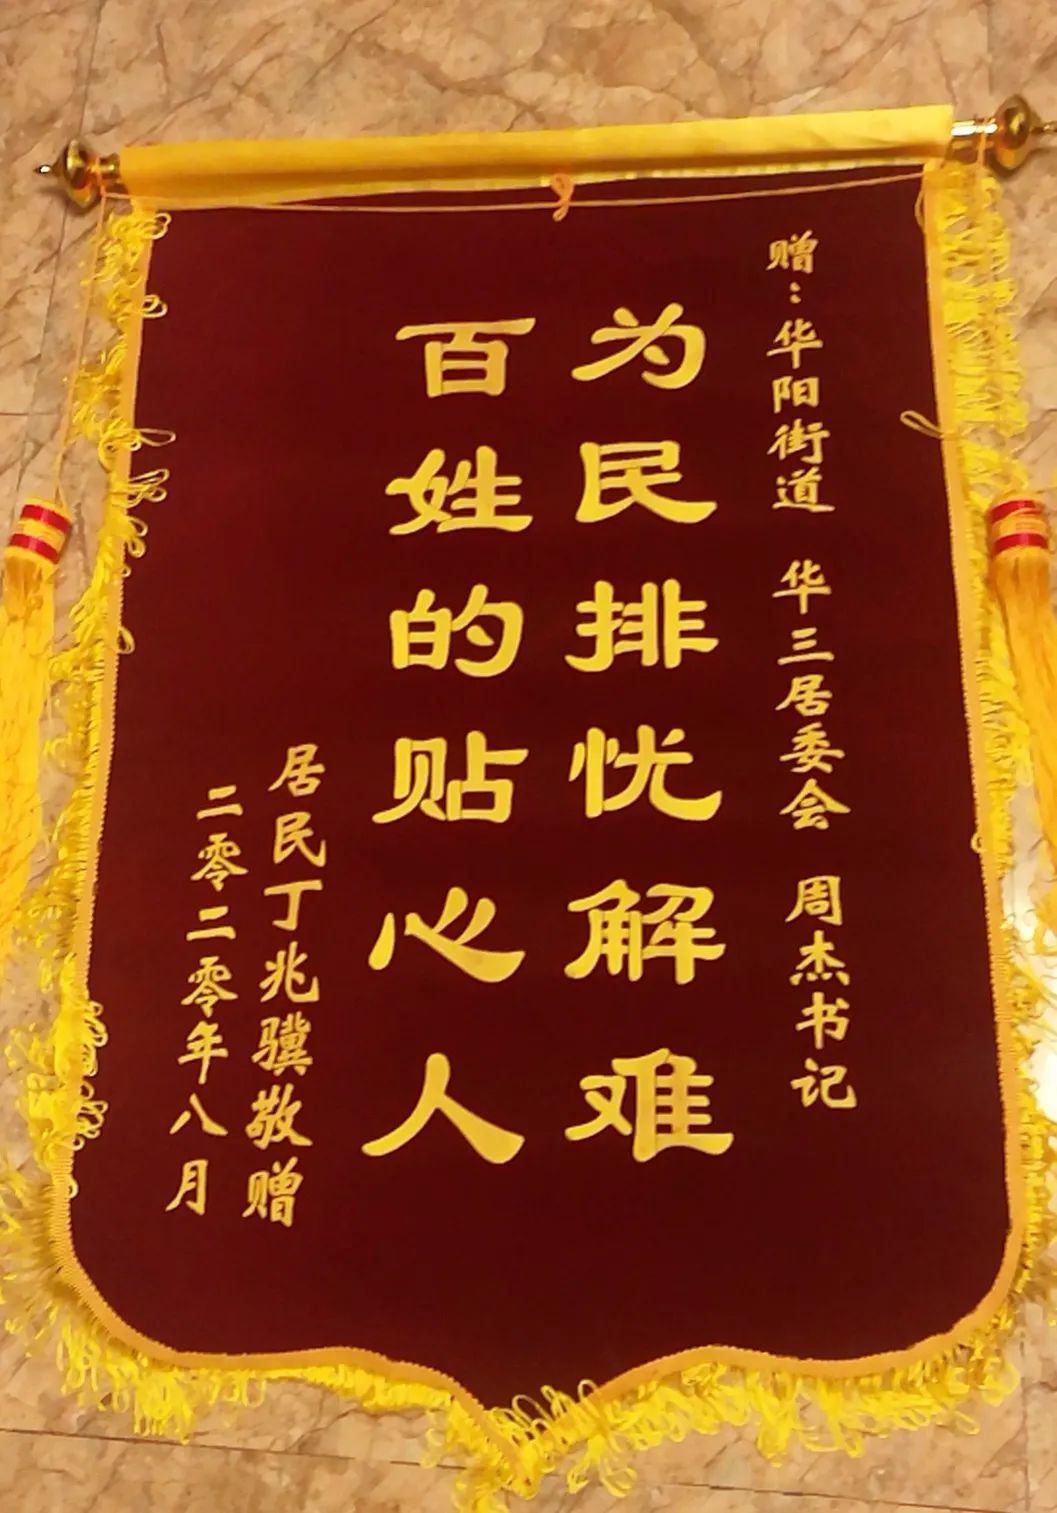 赠：华阳街道 华三居委会 周杰书记
为民排忧解难
百姓的贴心人
居民丁兆骥敬赠
二零二零年八月